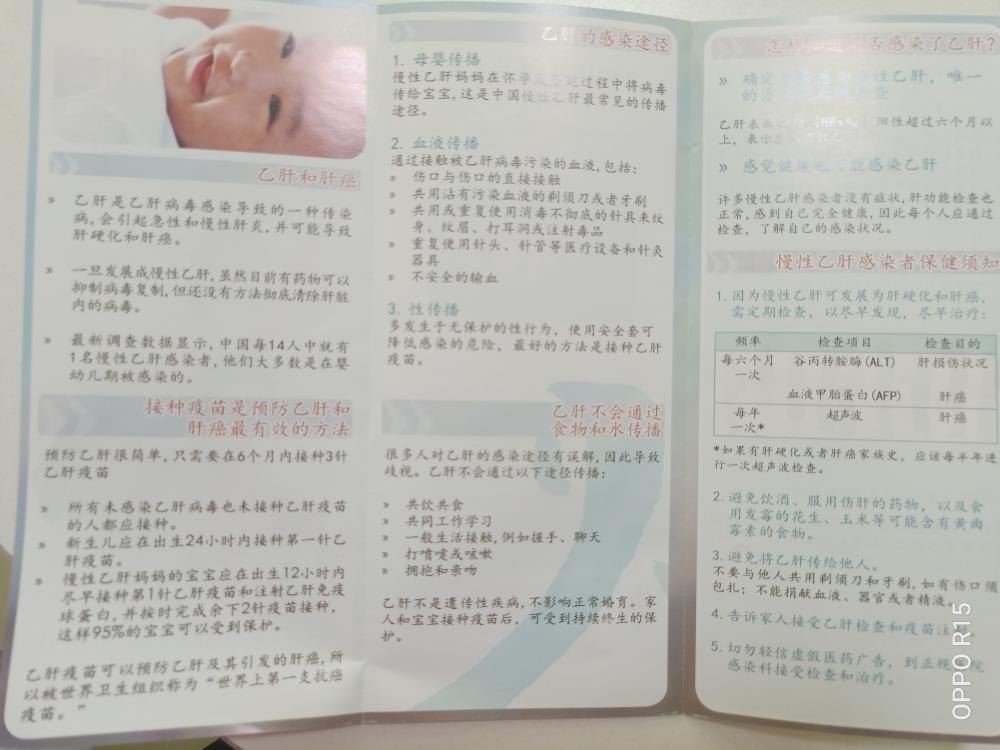 乙肝和肝癌
» 乙肝是乙肝病毒感染导致的一种传染
病,会引起急性和慢性肝炎,并可能导致
肝硬化和肝癌。
» 一旦发展成慢性乙肝,虽然目前有药物可以
抑制病毒复制,但还没有方法彻底清除肝脏
内的病毒。
» 最新调查数据显示,中国每14人中就有
1名慢性乙肝感染者,他们大多数是在婴
幼儿期被感染的。
接种疫苗是预防乙肝和
肝癌最有效的方法
预防乙肝很简单,只需要在6个月内接种3针
乙肝疫苗
» 所有未感染乙肝病毒也未接种乙肝疫苗
的人都应接种。
» 新生儿应在出生24小时内接种第一针乙
肝疫苗。
» 慢性乙肝妈妈的宝宝应在出生12小时内
尽早接种第1针乙肝疫苗和注射乙肝免疫
球蛋白,并按时完成余下2针疫苗接种,
这样95%的宝宝可以受到保护。
乙肝疫苗可以预防乙肝及其引发的肝癌,所
以被世界卫生组织称为“世界上第一支抗癌
疫苗。”
乙肝的感染途径
1. 母婴传播
慢性乙肝妈妈在怀孕过程中将病毒
传给宝宝,这是中国慢性乙肝最常见的传播
途径。
2. 血液传播
通过接触被乙肝病毒污染的血液,包括:
» 伤口与伤口的直接接触
» 共用沾有污染血液的剃须刀或者牙刷
» 共用或重复使用消毒不彻底的针具来纹
身、纹眉、打耳洞或注射毒品
» 重复使用针头、针管等医疗设备和针灸
器具
» 不安全的输血
3. 性传播
多发生于无保护的性行为, 使用安全套可
降低感染的危险, 最好的方法是接种乙肝
疫苗。
乙肝不会通过
食物和水传播
很多人对乙肝的感染途径有误解,因此导致
歧视。乙肝不会通过以下途径传播:
» 共饮共食
» 共同工作学习
» 一般生活接触,例如握手、聊天
» 打喷嚏或咳嗽
» 拥抱和亲吻
乙肝不是遗传性疾病,不影响正常婚育。家
人和宝宝接种疫苗后, 可受到持续终生的保
护。
否感染了乙肝?
» 确定 性乙肝, 唯一
的方 查
乙肝表面 (HBsAg) 阳性超过六个月以
上, 表示
» 感觉健康也可能感染乙肝
许多慢性乙肝感染者没有症状,肝功能检查也
正常,感到自己完全健康,因此每个人应通过
检查, 了解自己的感染状况。
慢性乙肝感染者保健须知
1. 因为慢性乙肝可发展为肝硬化和肝癌,
需定期检查, 以尽早发现, 尽早治疗:
频率 检查项目 检查目的
每六个月 谷丙转胺酶(ALT) 肝损伤状况
一次
血液甲胎蛋白(AFP) 肝癌
每年 超声波 肝癌
一次*
*如果有肝硬化或者肝癌家族史, 应该每半年进
行一次超声波检查。
2. 避免饮酒、服用伤肝的药物, 以及食
用发霉的花生、玉米等可能含有黄曲
霉素的食物。
3. 避免将乙肝传给他人。
不要与他人共用剃须刀和牙刷,如有伤口须
包扎; 不能捐献血液、器官或者精液。
4. 告诉家人接受乙肝检查和疫苗注
5. 切勿轻信虚假医药广告, 到正规 院
感染科接受检查和治疗。
OPPO R15